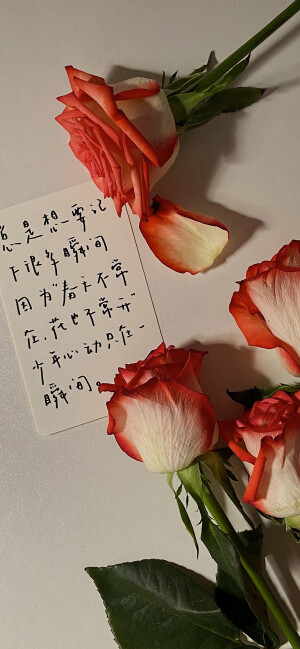 总是想要记
下很多瞬间
因为春天不常
在，花也不常开
少年心动只在一
瞬间。